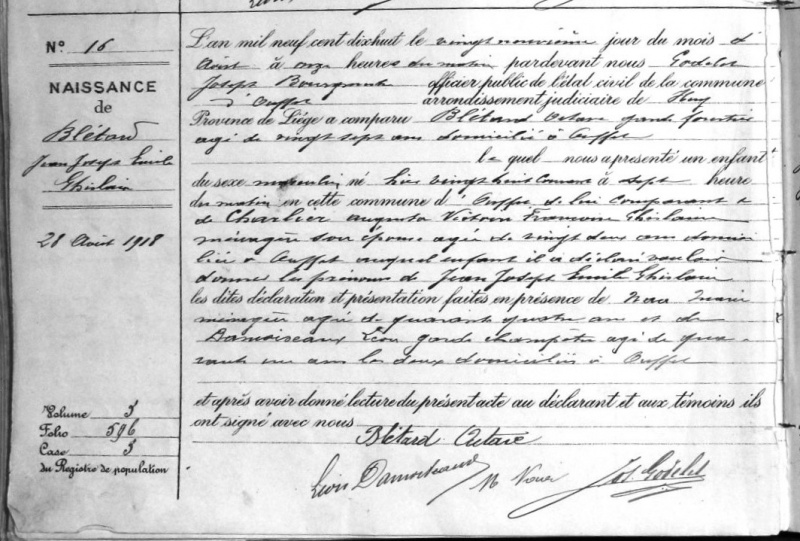 N° 16
NAISSANCE
de
Blétard
Jean Joseph Emile
Ghislain
28 Août 1918
Volume 5
Folio 596
Case 5
du Registre de population
L'an mil neuf cent dixhuit le vingt neuvième jour du mois d'
Août à onze heures du matin pardevant nous Godelet
Joseph Bourgmestre officier public de l'état civil de la commune
d'Ouffet arrondissement judiciaire de Huy
Province de Liège a comparu Blétard Octave garde forestier
agé de vingt sept ans domicilié à Ouffet
le quel nous a présenté un enfant
du sexe masculin né hier vingt huit courant à sept heure
du matin en cette commune d'Ouffet de lui comparant &
de Charlier Augusta Victoire Françoise Ghislaine
ménagère son épouse agée de vingt deux ans domici
liée à Ouffet auquel enfant il a déclaré vouloir
donner les prénoms de Jean Joseph Emile Ghislain
les dites déclaration et présentation faites en présence de Marie
ménagère agée de quarante quatre ans et de
Damoiseaux Léon garde champêtre agé de qua-
rante un ans les deux domiciliés à Ouffet
et après avoir donné lecture du présent acte au déclarant et aux témoins ils
ont signé avec nous
Blétard Octave
Léon Damoiseaux M Jos. Godelet